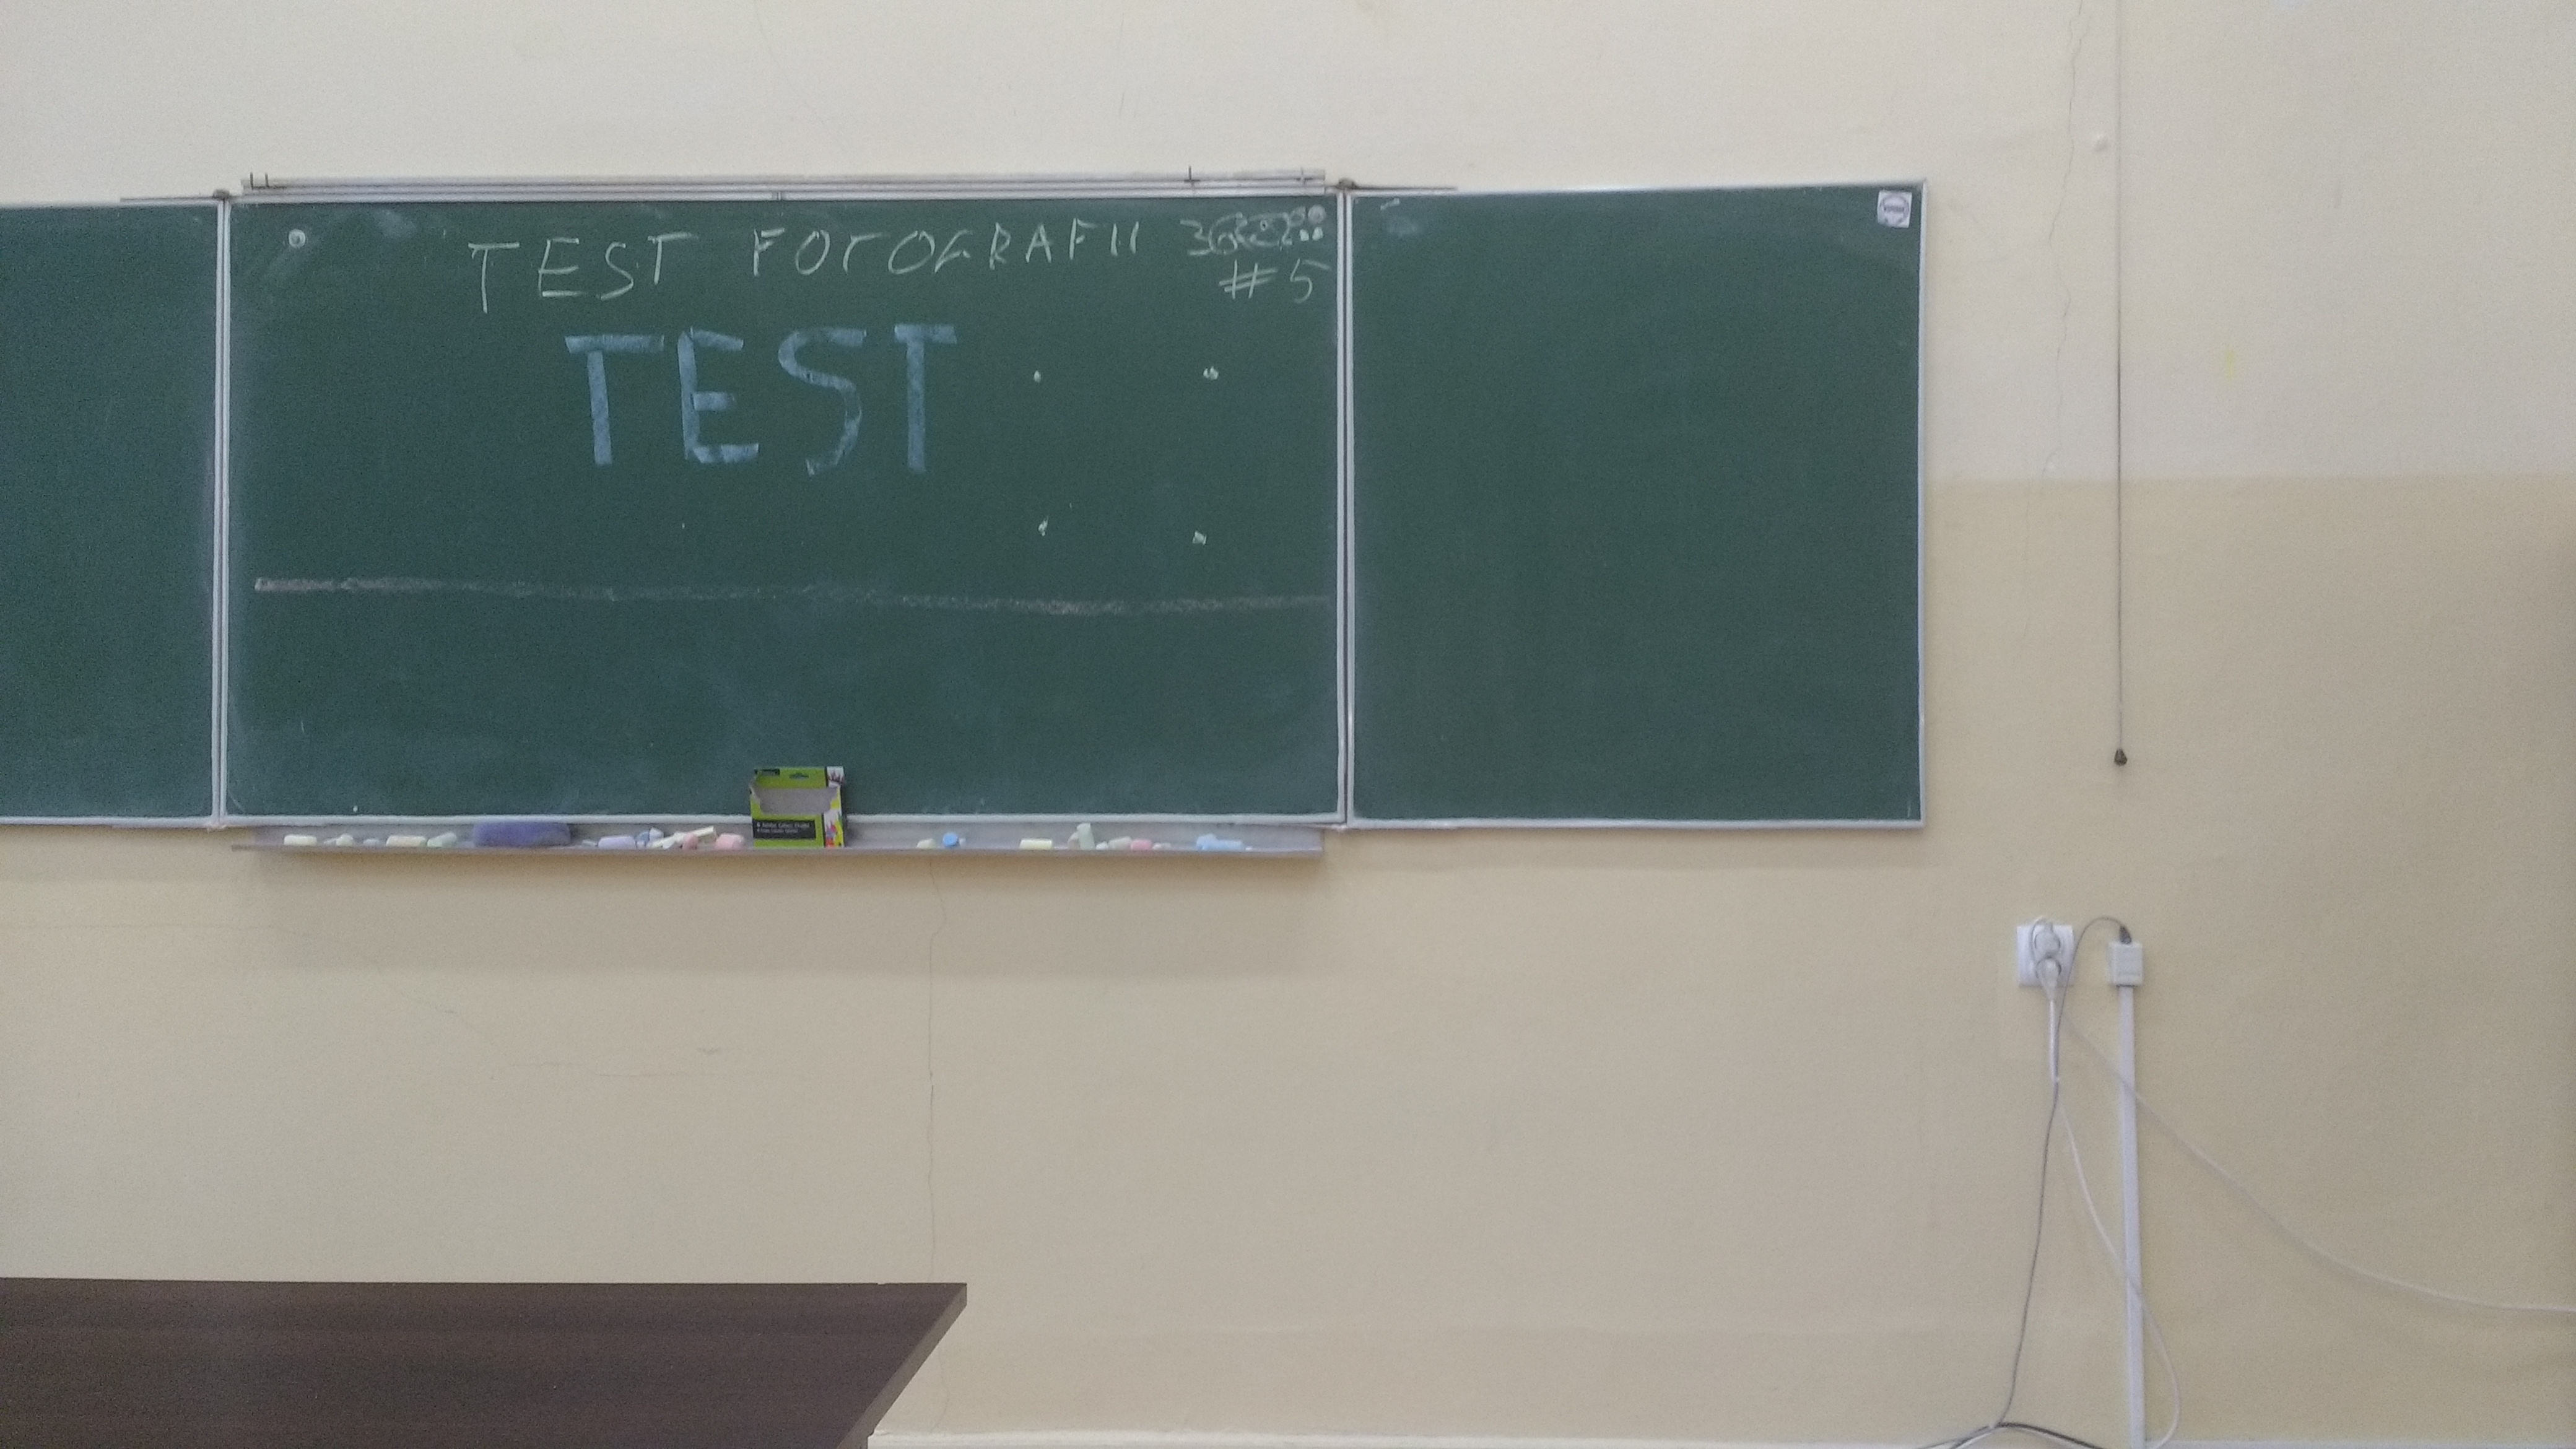 TEST FOTOGRAFII
#5
TEST